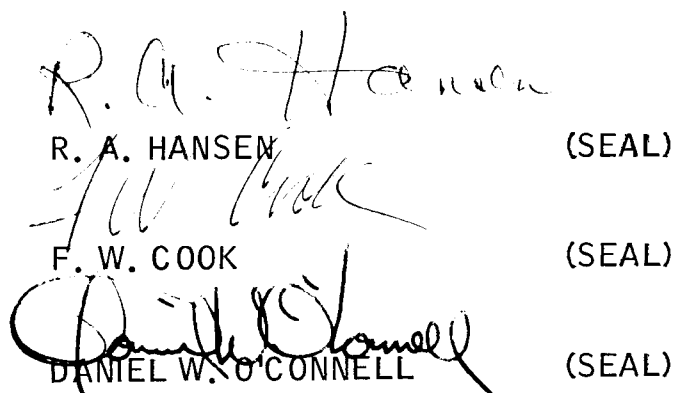 R. A. Hansen
R. A. HANSEN (SEAL)
F W Cook
F. W. COOK (SEAL)
Daniel W. O'Connell
DANIEL W. O'CONNELL (SEAL)